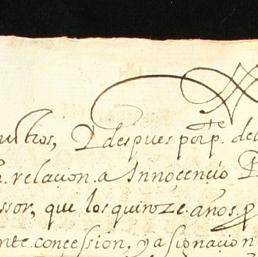 uestros, 2 despues por pte. del
n. relacion. a Innocencio P
ssor, que los quinze. años. p
nte. concession, y asignacion